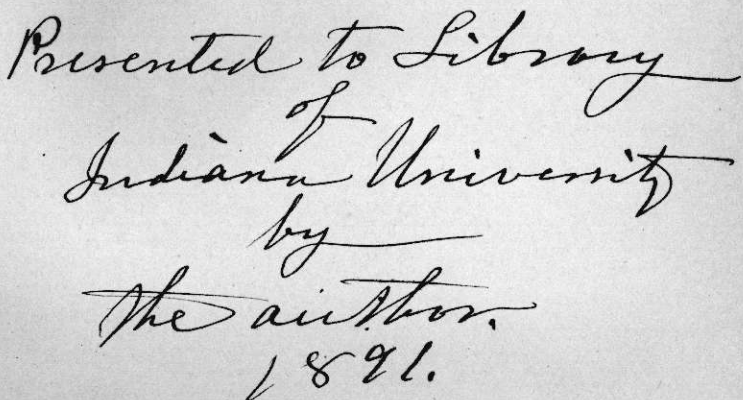 Presented to Library
of
Indiana University
by
the author.
1891.